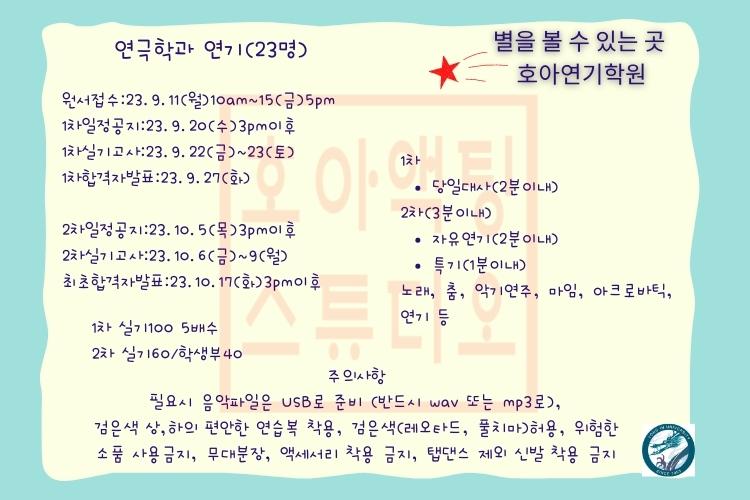 연극학과 연기(23명)
별을 볼 수 있는 곳
호아연기학원
원서접수:23.9.11(월)10am~15(금)5pm
1차일정공지:23.9.20(수)3pm이후
1차실기고사:23.9.22(금)~23(토)
1차합격자발표:23.9.27(화)
2차일정공지:23.10.5(목)3pm이후
2차실기고사:23.10.6(금)~9(월)
최초합격자발표:23.10.17(화)3pm이후
1차 실기100 5배수
2차 실기60/학생부40
1차
• 당일대사(2분이내)
2차(3분이내)
• 자유연기(2분이내)
• 특기(1분이내)
노래, 춤, 악기연주, 마임, 아크로바틱,
연기 등
호아액팅
스튜디오
주의사항
필요시 음악파일은 USB로 준비 (반드시 wav 또는 mp3로),
검은색 상,하의 편안한 연습복 착용, 검은색(레오타드, 풀치마)허용, 위험한
소품 사용금지, 무대분장, 액세서리 착용 금지, 탭댄스 제외 신발 착용 금지